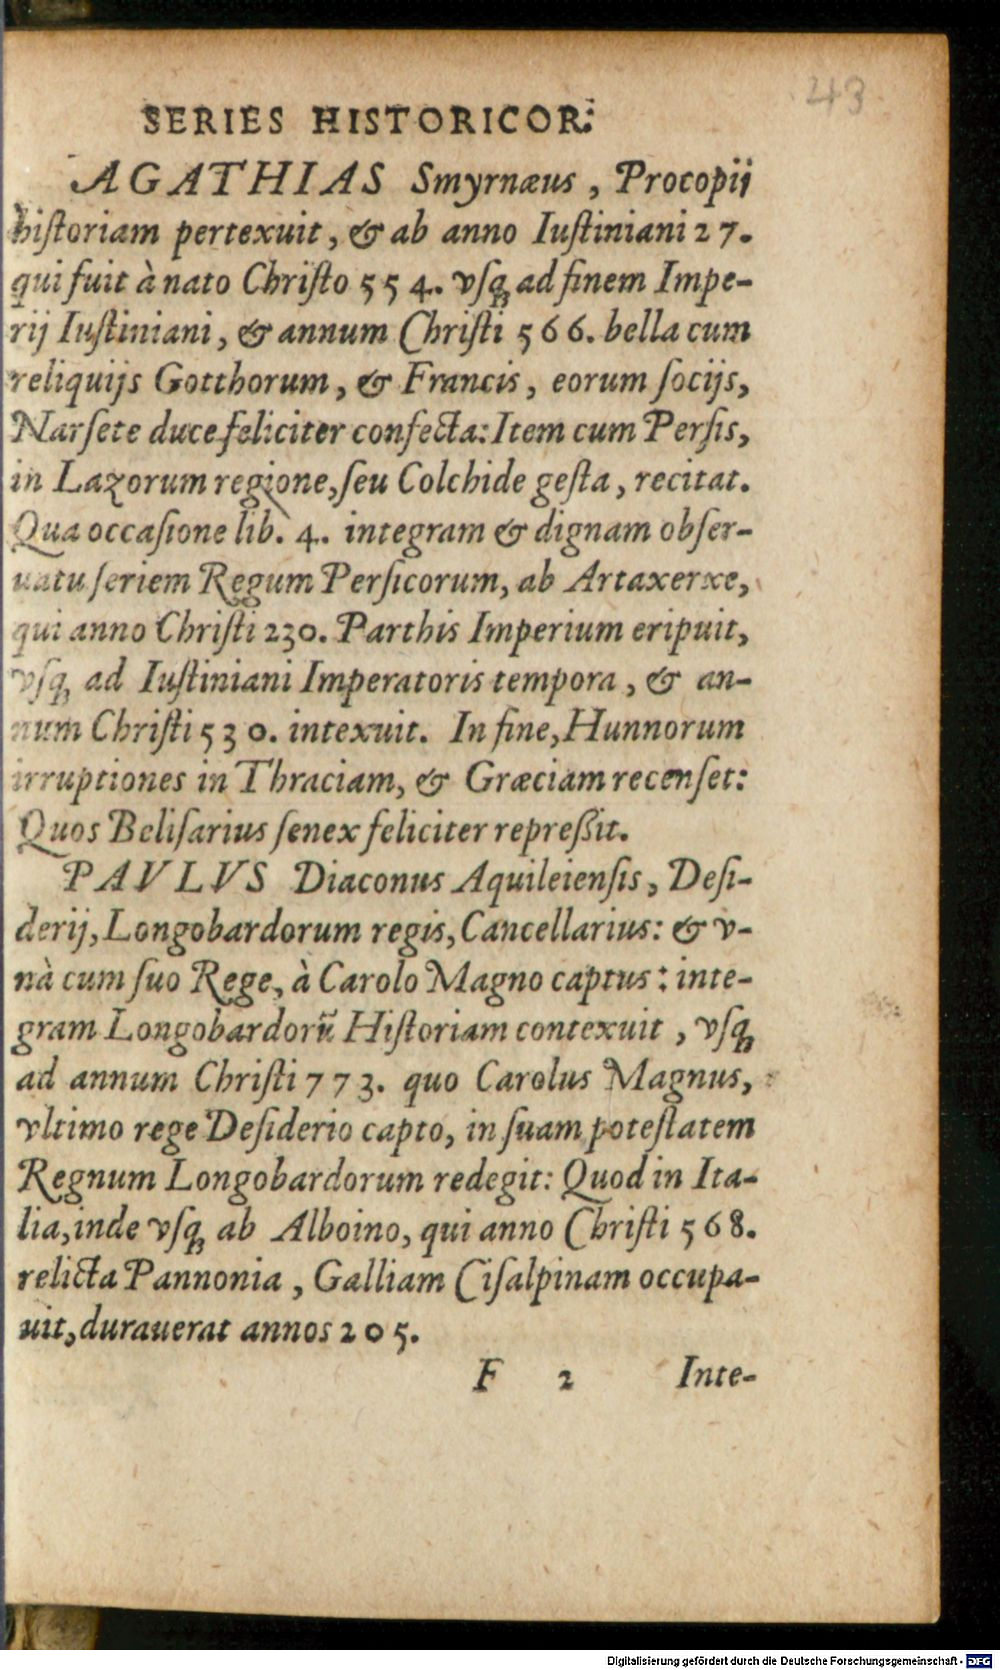 43
SERIES HISTORICOR:
AGATHIAS Smyrnæus, Procopij
historiam pertexuit, & ab anno Iustiniani 27.
qui fuit à nato Christo 554. vsq; ad finem Impe-
rij Iustiniani, & annum Christi 566. bella cum
reliquijs Gotthorum, & Francis, eorum socijs,
Narsete duce feliciter confecta: Item cum Persis,
in Lazorum regione, seu Colchide gesta, recitat.
Qua occasione lib. 4. integram & dignam obser-
uatu seriem Regum Persicorum, ab Artaxerxe,
qui anno Christi 230. Parthis Imperium eripuit,
vsq; ad Iustiniani Imperatoris tempora, & an-
num Christi 530. intexuit. In fine, Hunnorum
irruptiones in Thraciam, & Græciam recenset:
Quos Belisarius senex feliciter repreßit.
PAVLVS Diaconus Aquileiensis, Desi-
derij, Longobardorum regis, Cancellarius: & v-
nà cum suo Rege, à Carolo Magno captus: inte-
gram Longobardorũ Historiam contexuit, vsq;
ad annum Christi 773. quo Carolus Magnus,
vltimo rege Desiderio capto, in suam potestatem
Regnum Longobardorum redegit: Quod in Ita-
lia, inde vsq; ab Alboino, qui anno Christi 568.
relicta Pannonia, Galliam Cisalpinam occupa-
uit, durauerat annos 205.
F 2 Inte-
Digitalisierung gefördert durch die Deutsche Forschungsgemeinschaft - DFG